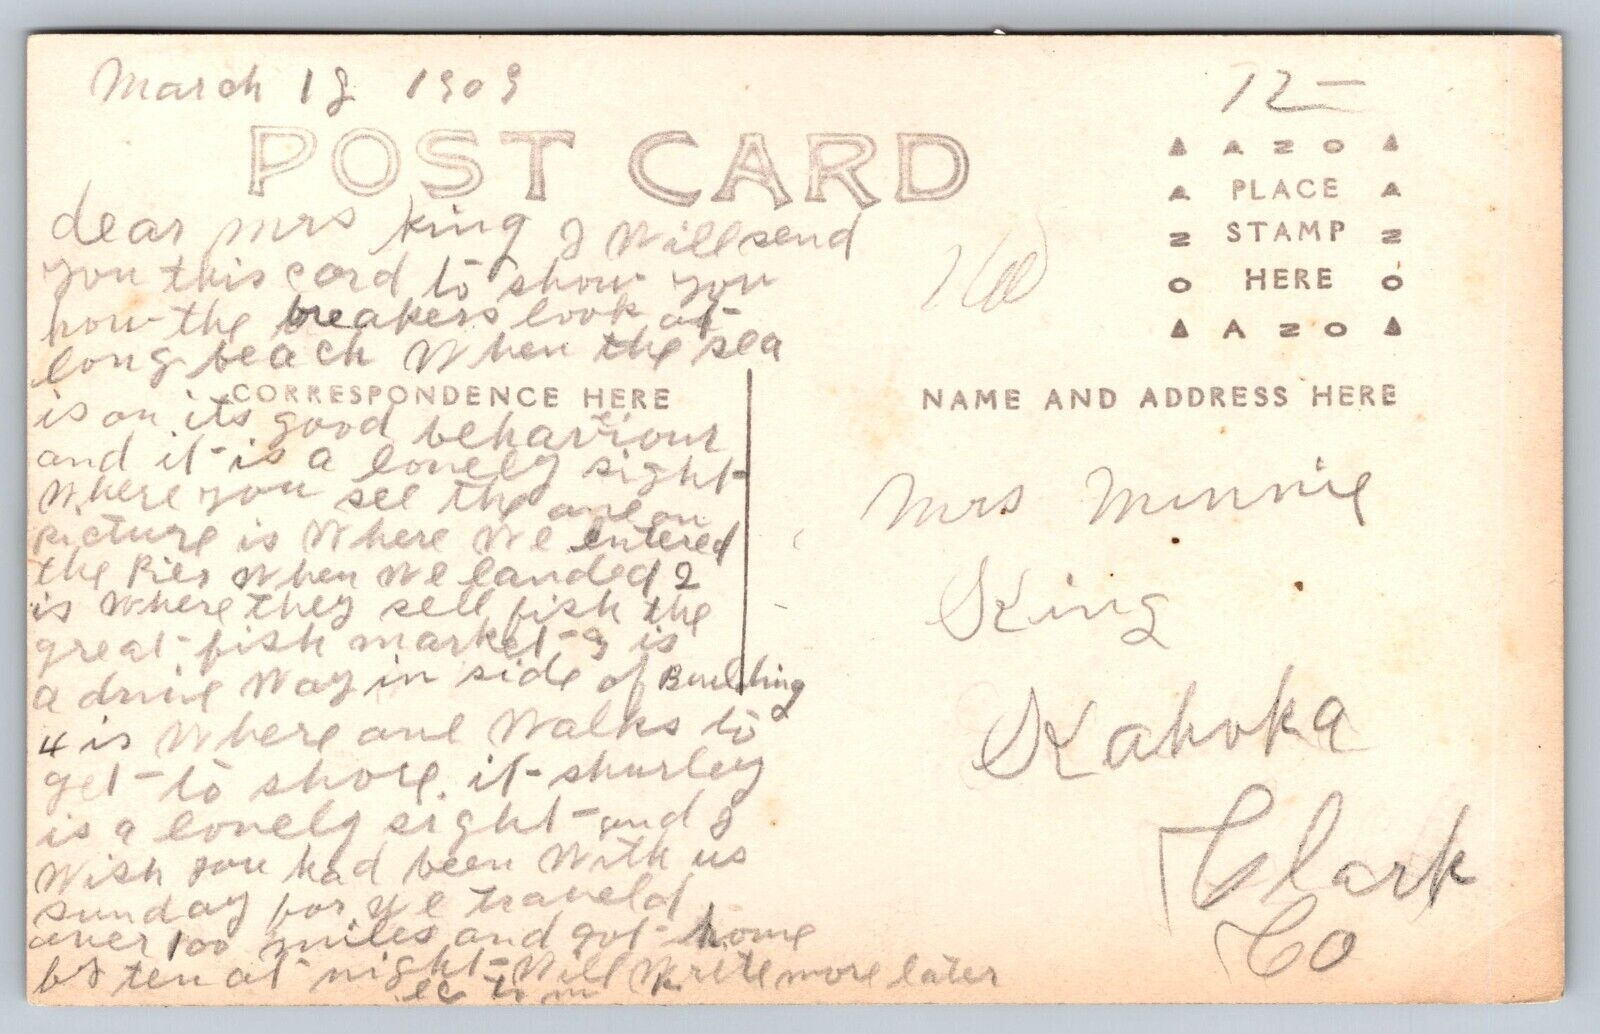 March 18 1909
12-
POST CARD
AZO
PLACE
STAMP
HERE
AZO
dear Mrs King I Will send
you this card to show you
how the breakers look at
long beach When the sea
CORRESPONDENCE HERE
is on its good behaviour
and it is a lonely sight
Where you see the one on
picture is Where We entered
the Pier When We landed 2
is Where they sell fish the
great fish market 3 is
a drive Way in side of Building
4 is Where one Walks to
get to shore. it shurley
is a lonely sight and I
Wish you had been With us
sunday for We traveld
over 100 miles and got home
by ten at night Will Write more later
NAME AND ADDRESS HERE
Mrs Minnie
King
Kahoka
Clark
Co